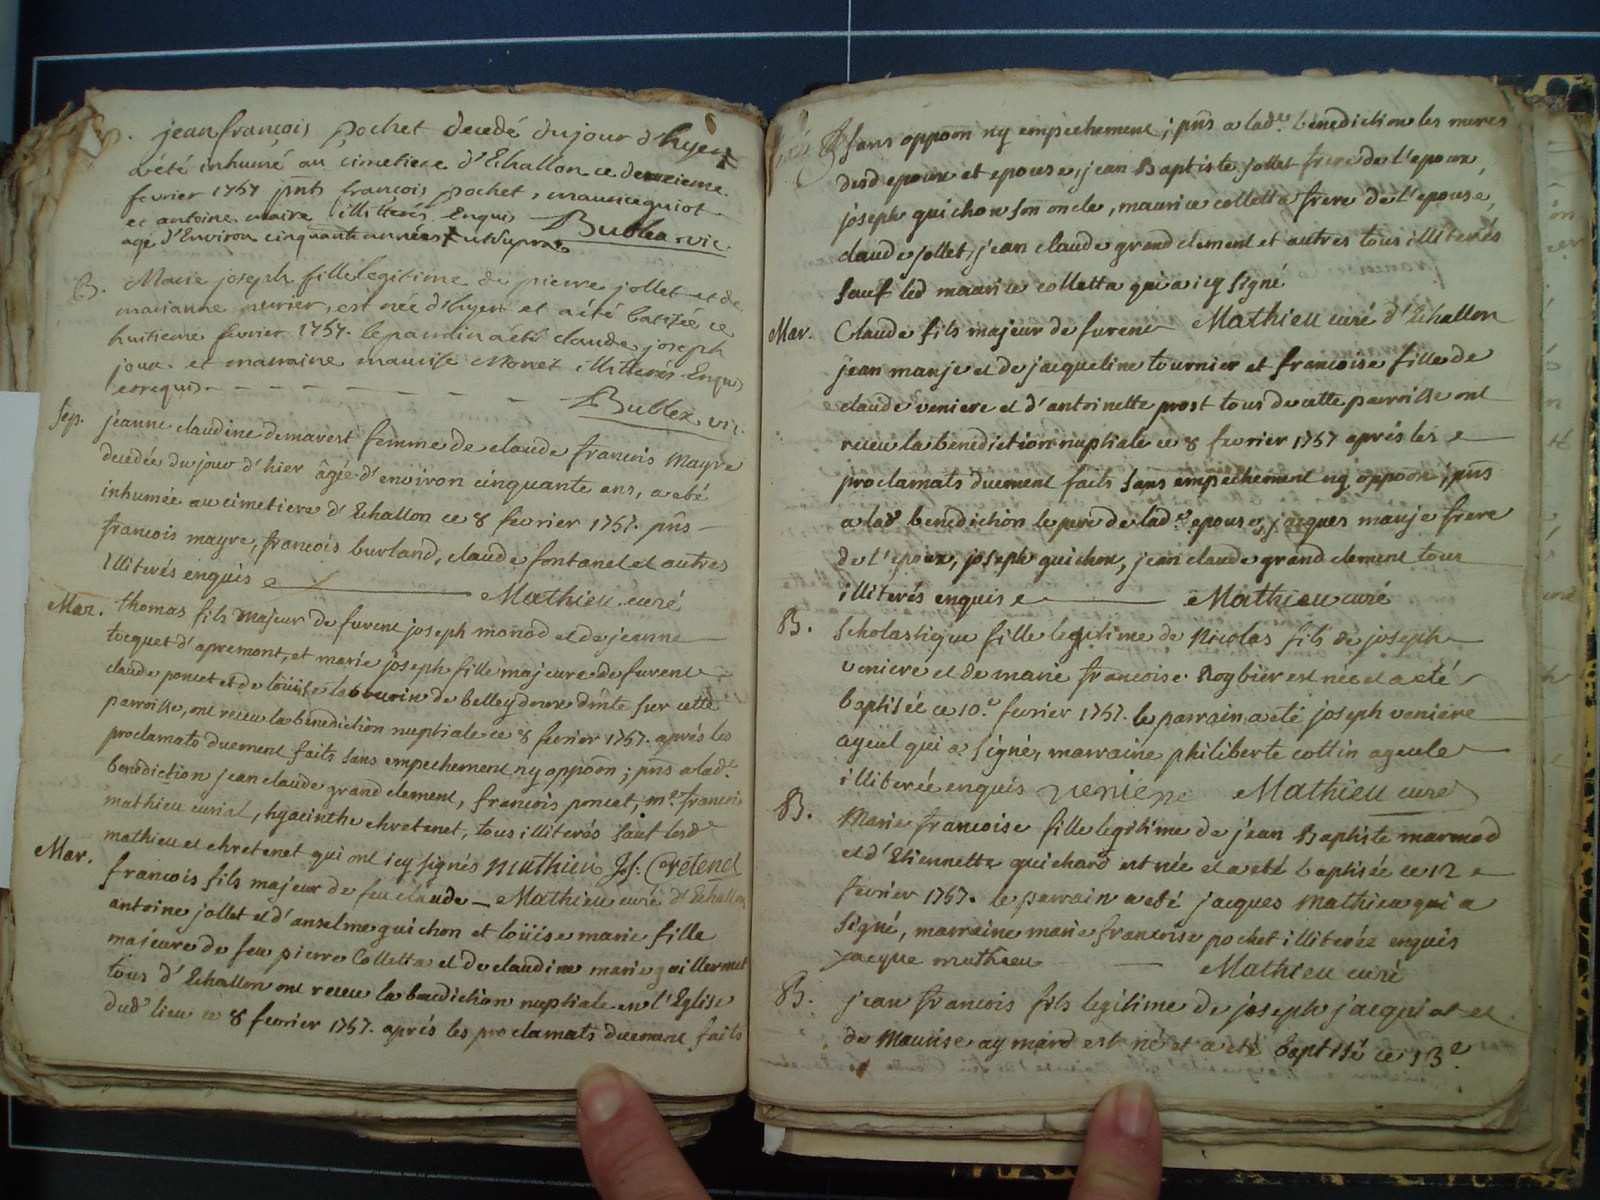 S. jean françois pochet decedé du jour d'hyer +
a été inhumé au cimetiere d'Echallon ce deuxieme
fevrier 1757 pnts françois pochet, maurice guiot
et antoine maire illiterés enquis Bublex vic.
+ agé d'Environ cinquante années + ut supra
B. Marie joseph fille legitime de pierre jollet et de
marianne murier, est née d'hyer et a été batisée ce
huitieme fevrier 1757. le parrain a été claude joseph
joux et marraine maurise Monet illiterés Enquis
et requis - - - - - - Bublex vic.
Sep. jeanne claudine demarest femme de claude francois Mayre
decedée du jour d'hier âgée d'environ cinquante ans, a eté
inhumée au cimetiere d'Echallon ce 8 fevrier 1757. pns
francois mayre, francois burland, claude fontanel et autres
Illiterés enquis Mathieu curé
Mar. thomas fils majeur de furent joseph monod et de jeanne
tocquet d'apremont, et marie joseph fille majeure de furent
claude poncet et de loüise de Belleydoux dnte sur cette
parroisse, ont receu la benediction nuptiale ce 8 fevrier 1757. aprés les
proclamats duement faits sans empechement ny oppoon; pns a lade
benediction jean claude grand clement, francois poncet, me francois
mathieu curial, hyacinthe chretenet, tous illiterés sauf lesd
mathieu et chretenet qui ont icy signés mathieu Jh. Cretenet
Mathieu curé d'Echallon
Mar. francois fils majeur de feu claude
antoine jollet et d'anselme guichon et loüise marie fille
majeure de feu pierre Colletta et de claudine marie guillermet
tous d'Echallon ont receu la benediction nuptiale en l'Eglise
dud lieu ce 8 fevrier 1757. aprés les proclamats duement faits
sans oppoon ny empechement; pns a lade benediction les meres
desd epoux et epouse, jean Baptiste jollet frere de l'epoux,
joseph guichon son oncle, maurice colletta frere de l'epouse,
claude jollet, jean claude grand clement et autres tous illiterés
sauf led maurice colletta qui a icy signé
Mathieu curé d'Echallon
Mar. Claude fils majeur de furent
jean manje et de jacqueline tournier et francoise fille de
claude veniere et d'antoinette prost tous de cette parroisse ont
receu la benediction nuptiale ce 8 fevrier 1757 aprés les
proclamats duement faits sans empechement ny oppoon; pns
a lad benediction le pere de lade epouse, jacques manje frere
de l'epoux, joseph guichon, jean claude grand clement tous
illiterés enquis Mathieu curé
B. Scholastique fille legitime de Nicolas fils de joseph
veniere et de marie francoise Roybier est née et a eté
baptisée ce 10.e fevrier 1757. le parrain a eté joseph veniere
ayeul qui a signé, marraine philiberte cottin ayeule
illiterée enquis veniere Mathieu curé
B. Marie francoise fille legitime de jean Baptiste marmod
et d'Etiennette guichard est née et a eté baptisée ce 12
fevrier 1757. le parrain a eté jacques mathieu qui a
signé, marraine marie francoise pochet illiterée enquis
Jacque mathieu Mathieu curé
B. jean francois fils legitime de joseph jacquiot et
de Maurise aymard est né et a eté baptisé ce 13e